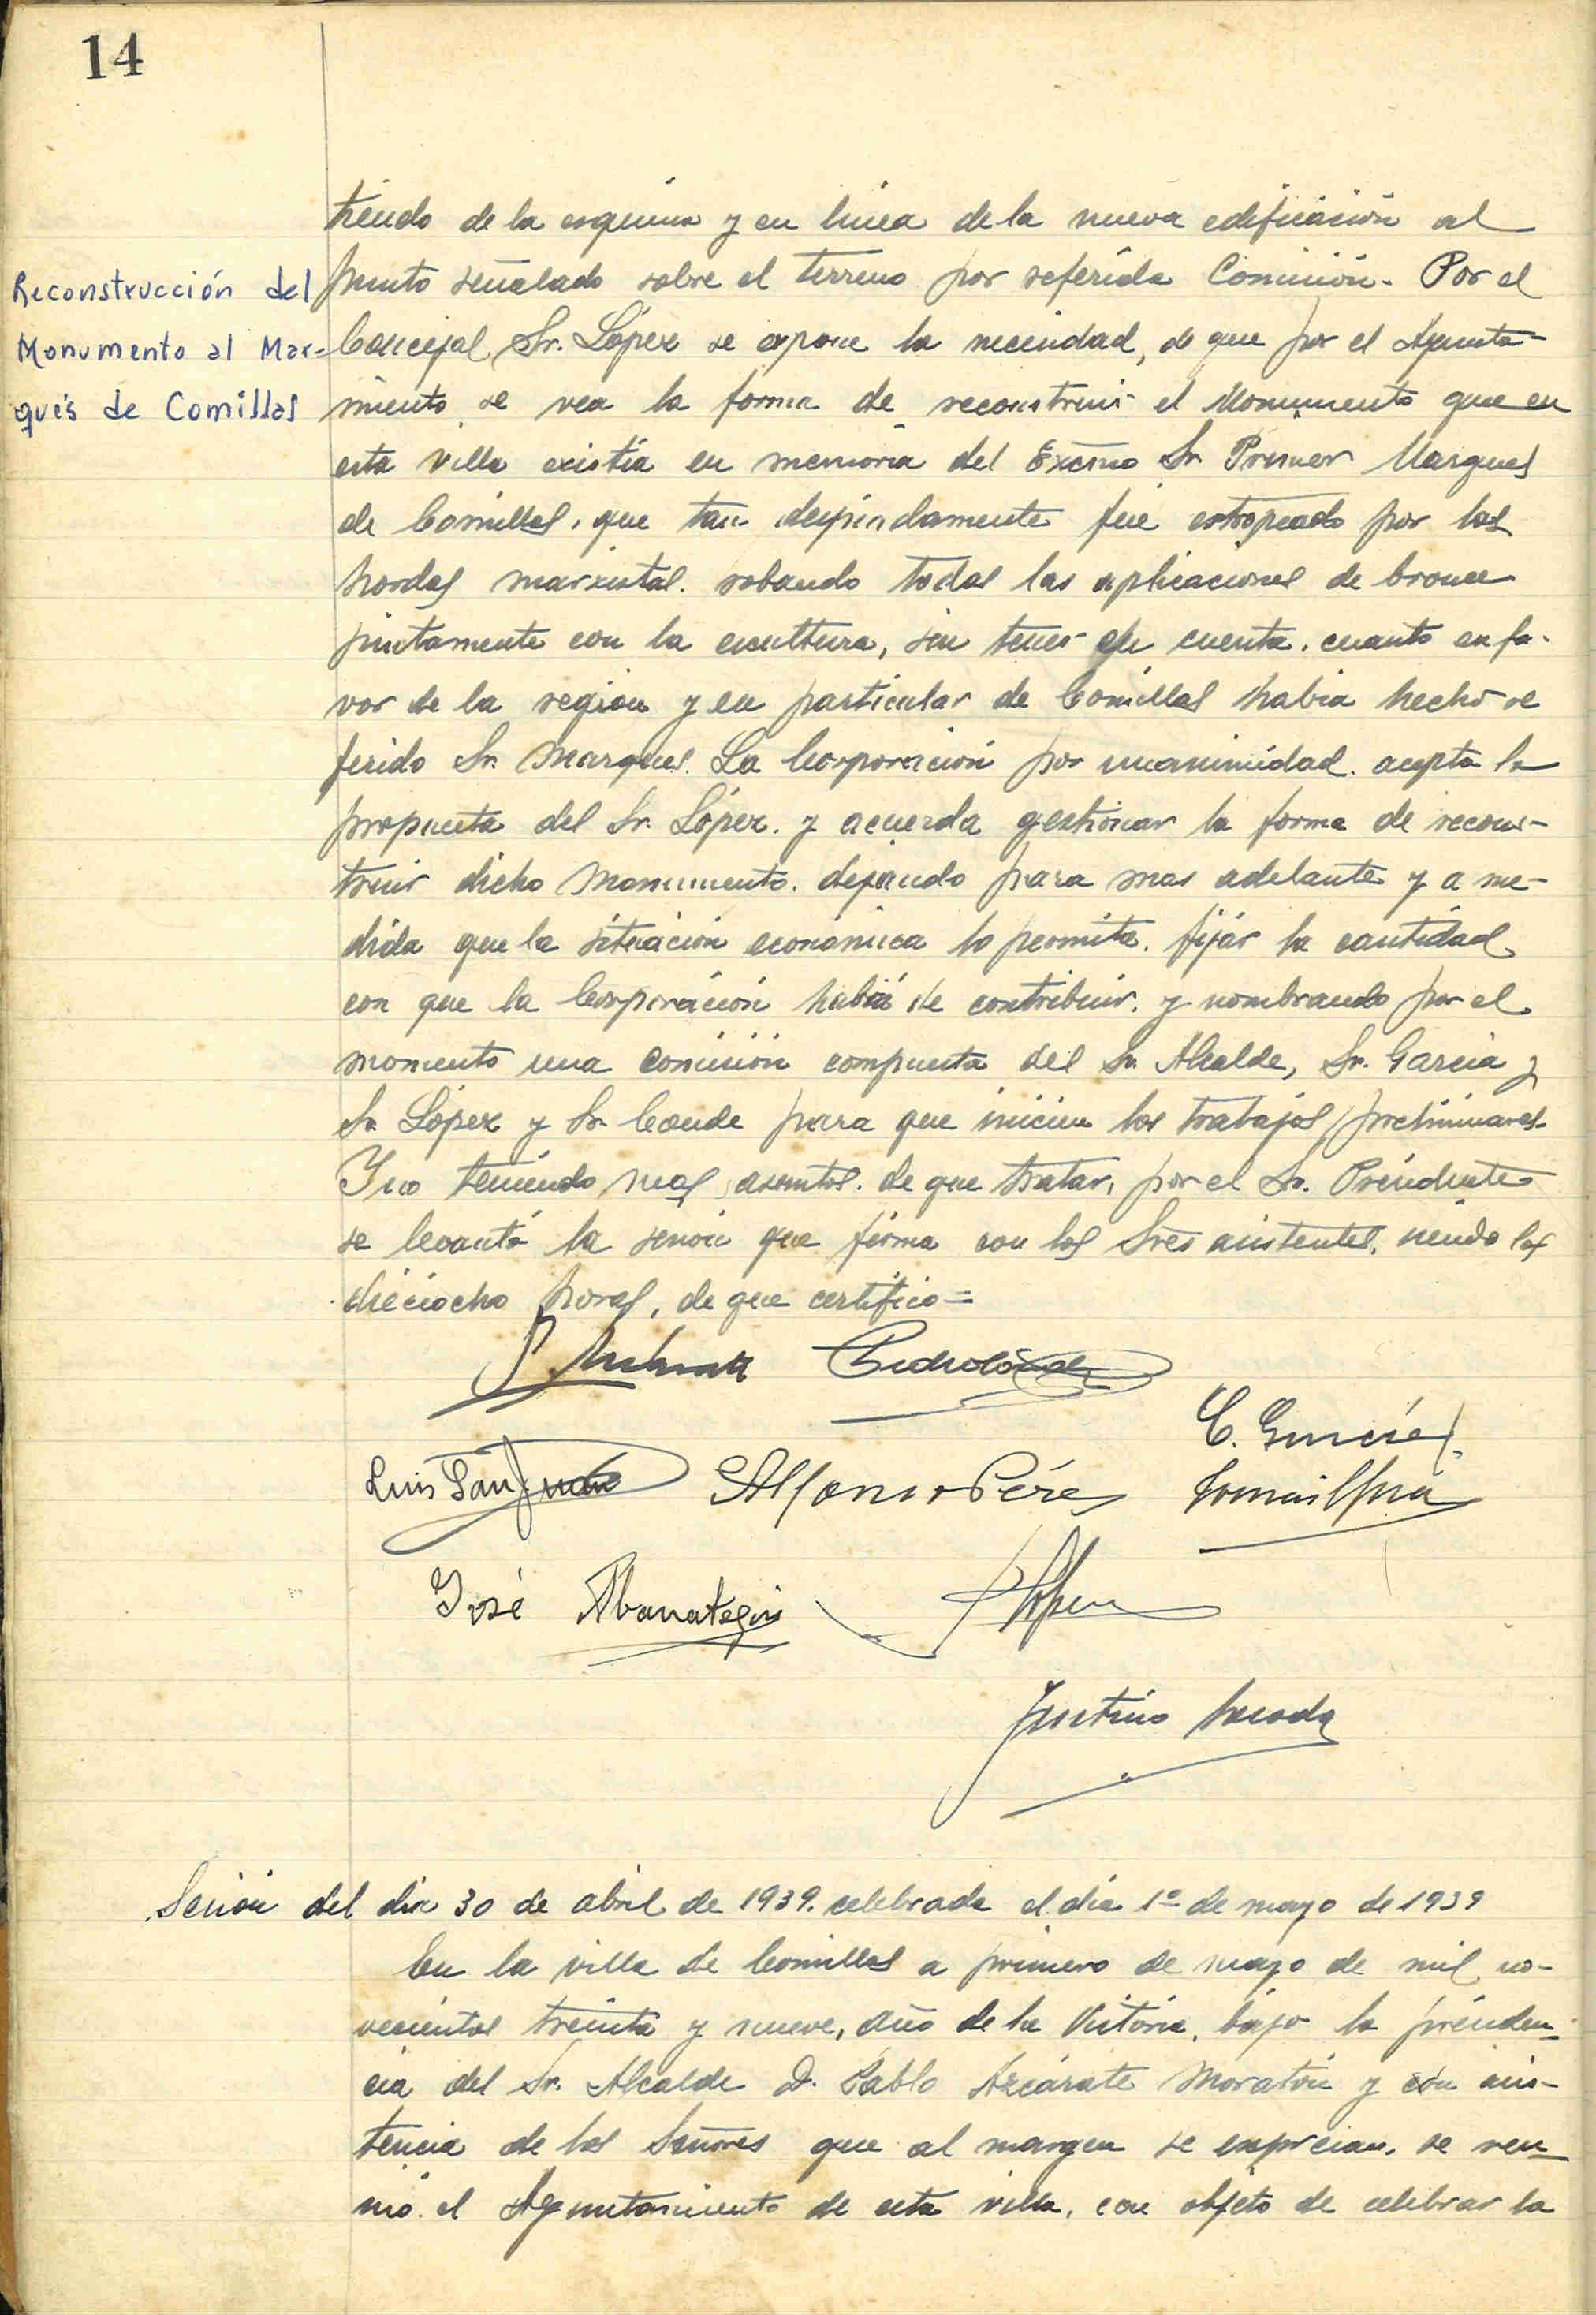 14
Reconstrucción del
Monumento al Mar-
qués de Comillas
tiendo de la esquina y en línea de la nueva edificación al
punto señalado sobre el terreno por referida Comisión. Por el
Concejal Sr. López se expone la necesidad, de que por el Ayunta-
miento se vea la forma de reconstruir el Monumento que en
esta villa existía en memoria del Excmo Sr. Primer Marques
de Comillas, que tan despiadamente fué estropeado por las
hordas marxistas. robando todas las aplicaciones de bronce
juntamente con la escultura, sin tener en cuenta. cuanto en fa-
vor de la region y en particular de Comillas habia hecho re
ferido Sr. Marques. La Corporación por unanimidad. acepta la
propuesta del Sr. López. y acuerda gestionar la forma de recons-
truir dicho Monumento. dejando para mas adelante y a me-
dida que la situación económica lo permita. fijár la cantidad
con que la Corporación habrá de contribuir. y nombrando por el
momento una Comisión compuesta del Sr. Alcalde, Sr. García y
Sr López y Sr. Conde para que inicien los trabajos preliminares.
Y no teniendo mas asuntos. de que tratar, por el Sr. Presidente
se levantó la sesión que firma con los Sres asistentes, siendo las
dieciocho horas, de que certifico=
C. García
Luis San Juan Alfonso Pérez
José Abanategui López
Justino
Sesión del dia 30 de abril de 1939. celebrada el dia 1º de mayo de 1939
En la villa de Comillas a primero de mayo de mil no-
vecientos treinta y nueve, año de la Victoria, bajo la presiden-
cia del Sr. Alcalde D. Pablo Azcárate Moratón y con asis-
tencia de los Señores que al margen se expresan. se reu-
nió. el Ayuntamiento de esta villa, con objeto de celebrar la